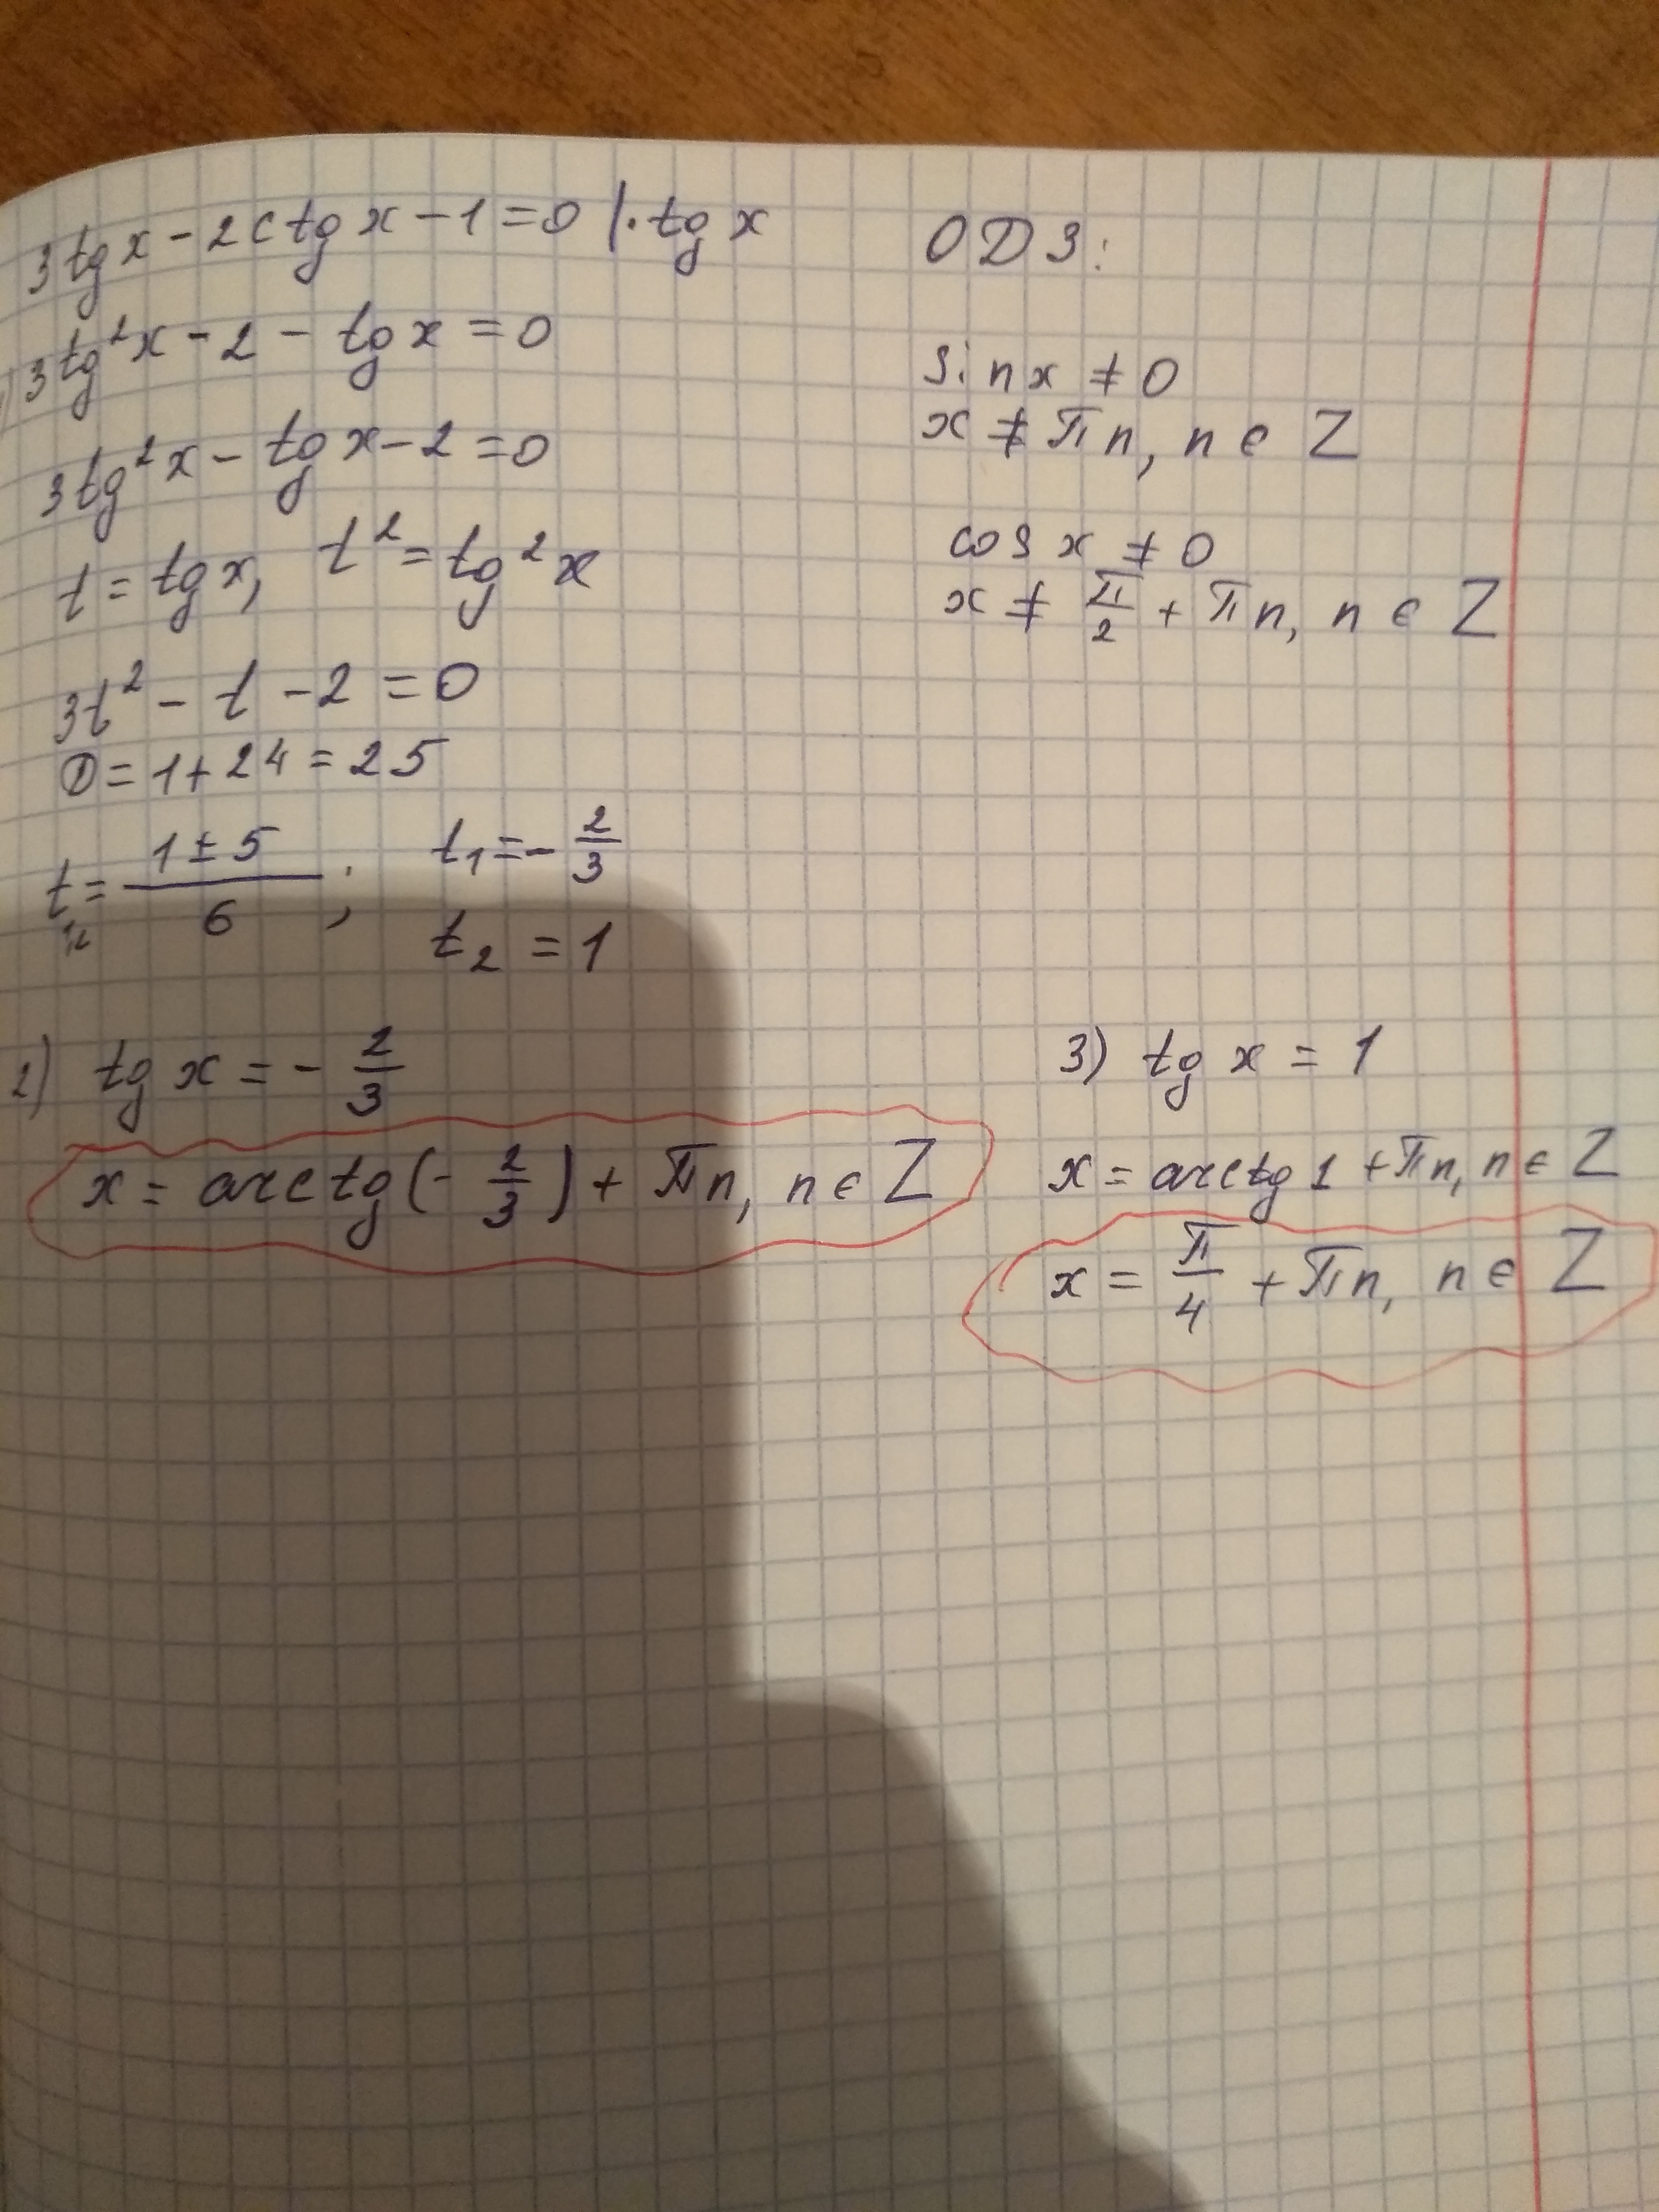 3tgx - 2ctgx - 1 = 0 |·tgx
3tg²x - 2 - tgx = 0
3tg²x - tgx - 2 = 0
t = tgx, t² = tg²x
3t² - t - 2 = 0
D = 1 + 24 = 25
t₁,₂ = (1 ± 5)/6 ; t₁ = -2/3
t₂ = 1
ОДЗ:
sinx ≠ 0
x ≠ πn, n ∈ Z
cosx ≠ 0
x ≠ π/2 + πn, n ∈ Z
2) tgx = -2/3
x = arctg(-2/3) + πn, n ∈ Z
3) tgx = 1
x = arctg1 + πn, n ∈ Z
x = π/4 + πn, n ∈ Z